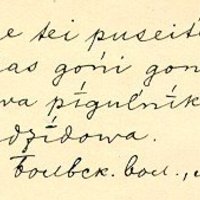 e tei puseiti
as gońi gon
wa pígulńik
dzídowa.
Болвск. вол.,